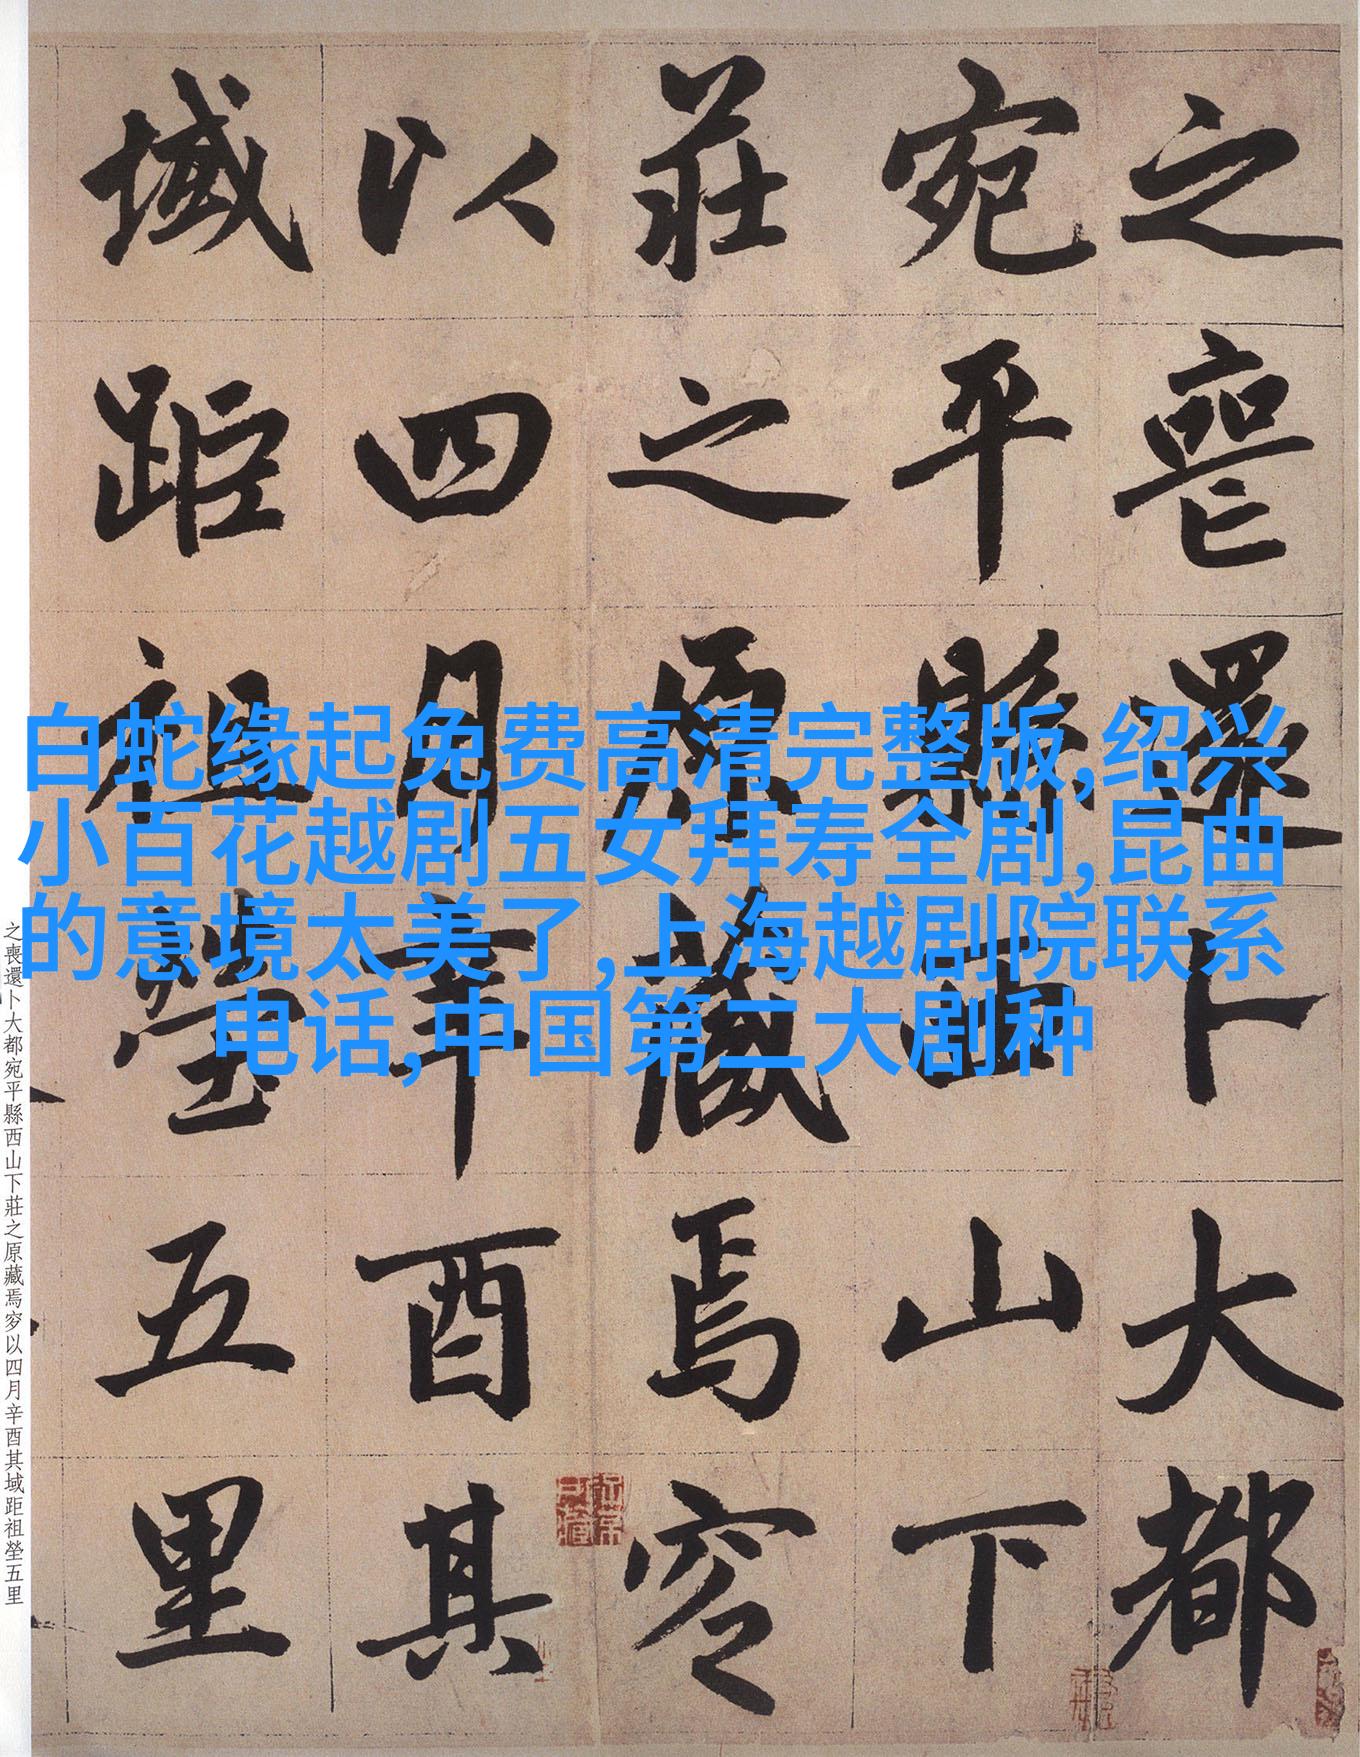 之喪還卜大都
宛平縣西山下
莊之原藏焉穸
以四月辛酉其
域距祖塋五里
白蛇缘起免费高清完整版,绍兴
小百花越剧五女拜寿全剧,昆曲
的意境太美了,上海越剧院联系
电话,中国第二大剧种
之喪還卜大都宛平縣西山下莊之原藏焉穸以四月辛酉其域距祖塋五里